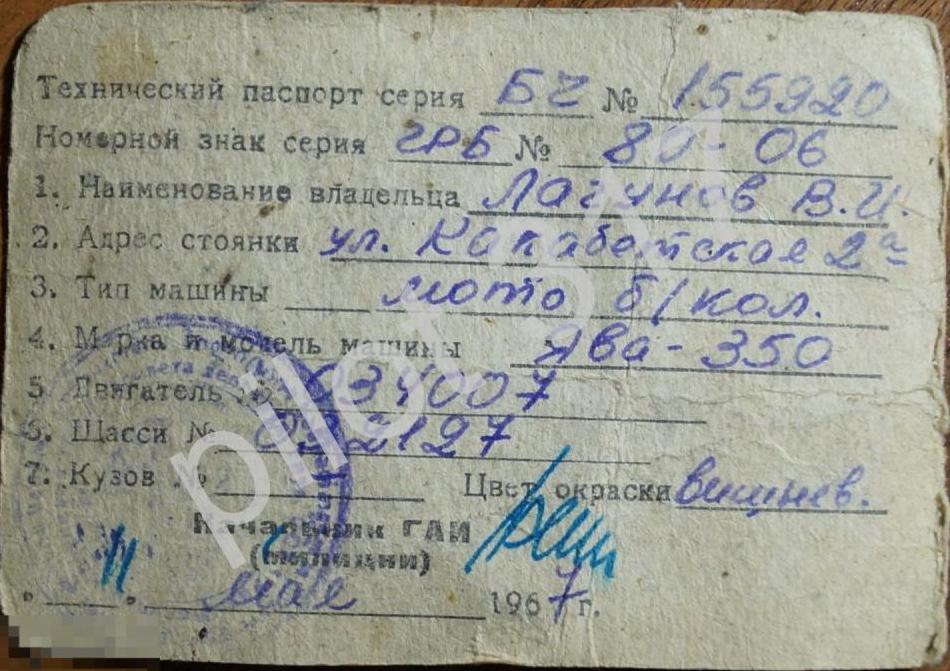 Технический паспорт серия БЧ № 155920
Номерной знак серия ГРБ № 80-06
1. Наименование владельца Лагунов В.И.
2. Адрес стоянки ул. 2а
3. Тип машины мото б/кол.
4. Марка и модель машины Ява-350
5 Двигатель № 634007
6. Щасси №
7. Кузов № Цвет окраски вишнев.
Начальник ГАИ
(милиции)
11 мая 1967 г.